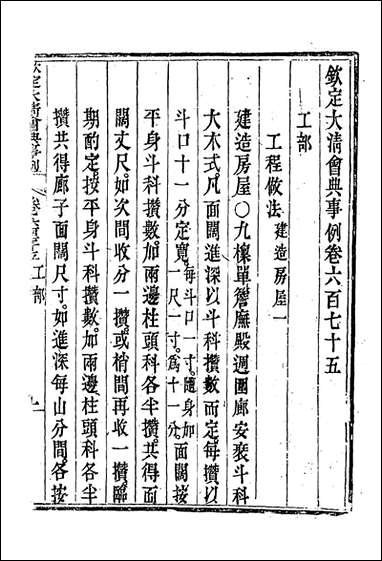 欽定大清會典事例卷六百七十五
工部
工程做法建造房屋一
建造房屋〇九檁單簷廡殿週圍廊安裝斗科
大木式凡面闊進深以斗科攢數而定每攢以
斗口十一分定寬每斗口一寸隨身加一尺一寸為十一分面闊按
平身斗科攢數加兩邊柱頭科各半攢共得面
闊丈尺如次間收分一攢或梢間再收一攢臨
期酌定按平身斗科攢數加兩邊柱頭科各半
攢共得廊子面闊尺寸如進深每山分間各按
欽定大清會典事例 卷六百七十五 工部 一